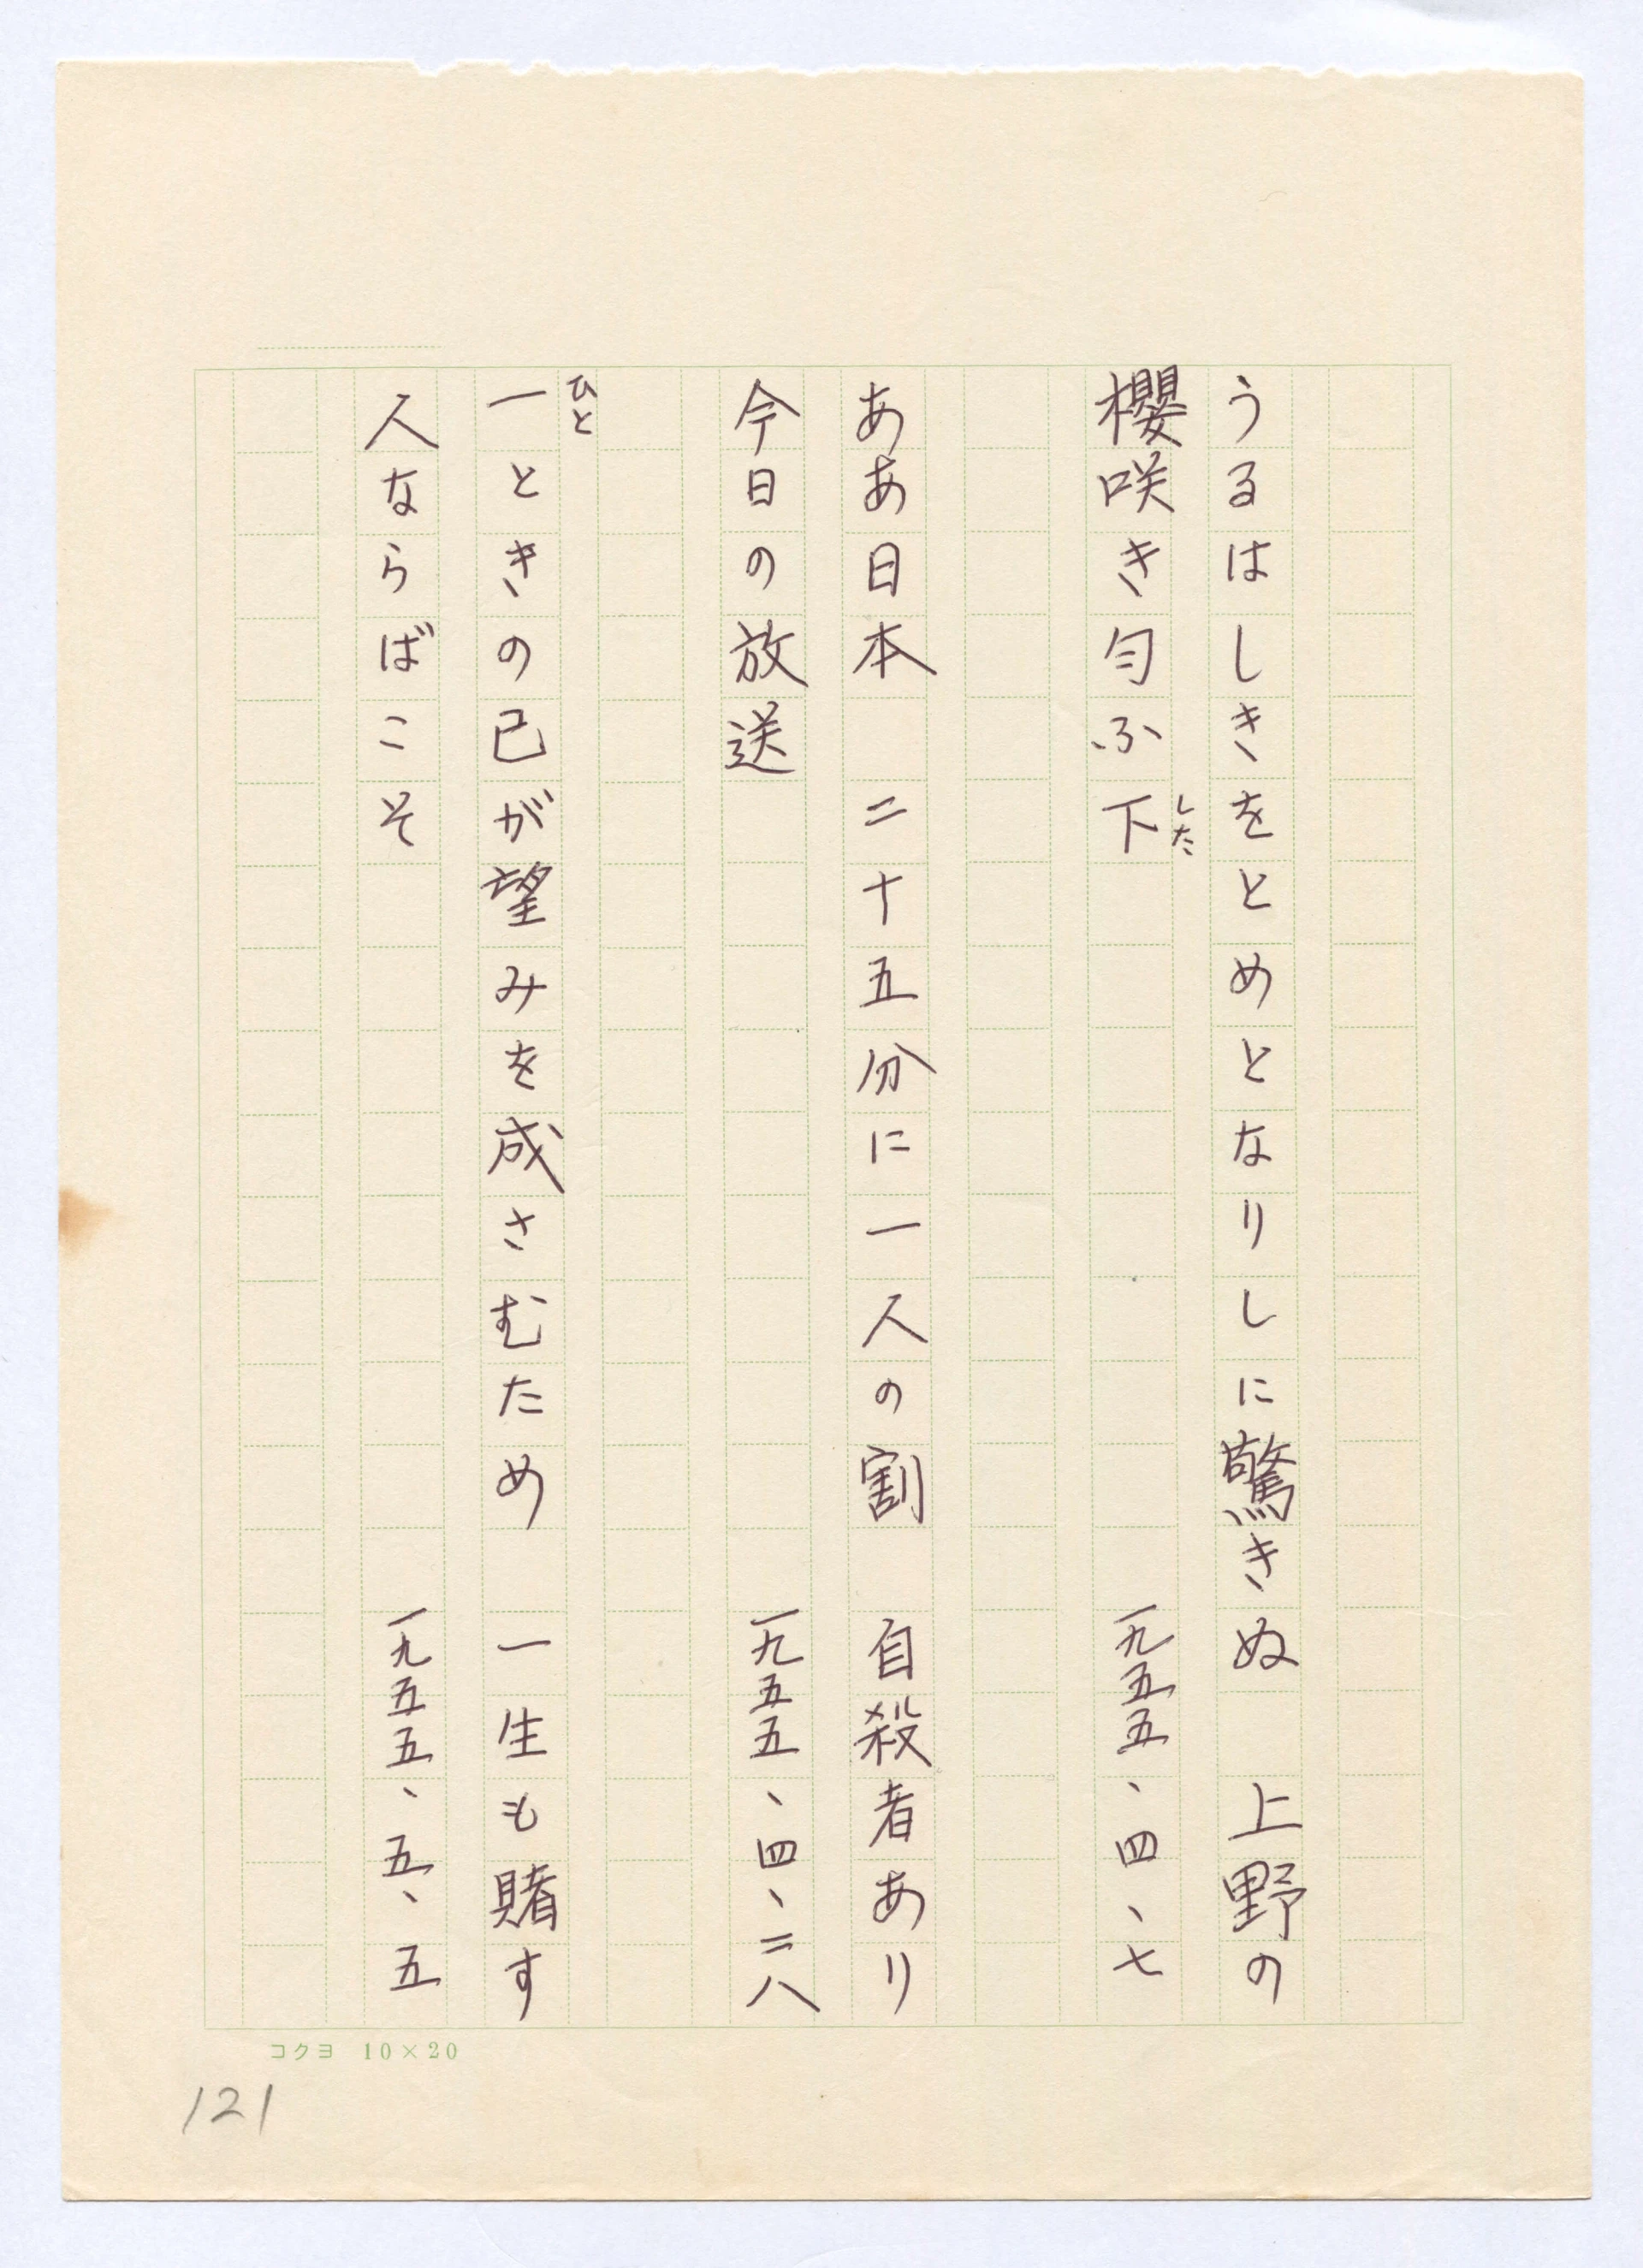 うるはしきをとめとなりしに驚きぬ　上野の
櫻咲き匂ふ下　一九五五、四、七
した
ああ日本　二十五分に一人の割　自殺者あり
今日の放送　一九五五、四、二八
ひと
一ときの己が望みを成さむため　一生も賭す
人ならばこそ　一九五五、五、五
コクヨ 10×20
121